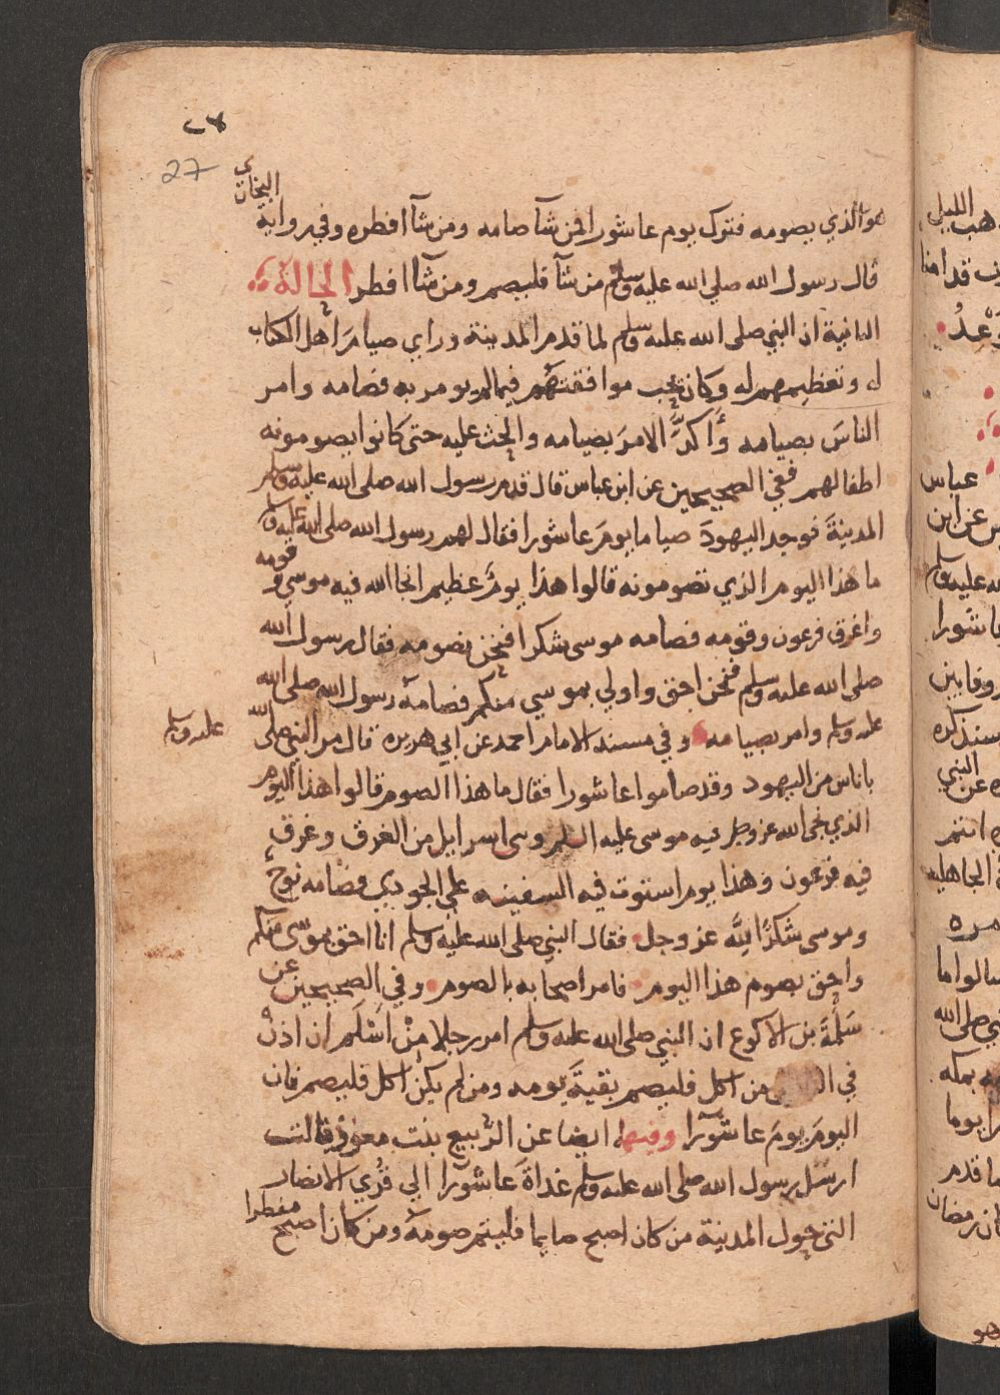 ٢٧
27
البخاري
هو الذي يصومه فترك يوم عاشورا فمن شآ صامه ومن شآ افطره وفي رواية
قال رسول الله صلي الله عليه وسلم من شآ فليصم ومن شآ افطر الحالة
الثانية ان النبي صلى الله عليه وسلم لما قدم المدينة وراي صيامَ اهل الكتاب
له وتعظيمهم له وكان يحب موافقتهُم فيما لم يومر به فصامه وامر
الناسَ بصيامه وأَكدَّ الامرَ بصيامه والحث عليه حتى كانوا يصومونه
اطفالهم ففي الصحيحين عن ابن عباس قال قدم رسول الله صلى الله عليه وسلم
المدينةَ فوجد اليهودَ صياما يومَ عاشورا فقال لهم رسول الله صلى الله عليه وسلم
ما هذا اليوم الذي تصومونه قالوا هذا يومٌ عظيم انجا الله فيه موسي و قومه
واغرق فرعون وقومه فصامه موسى شكرا فنحن نصومه فقال رسول الله
صلى الله عليه وسلم فنحن احق واولي بموسي منكم فصامه رسول الله صلى الله
عليه وسلم وامر بصيامه وفي مسند الامام احمد عن ابي هريره قال مر النبي صلى الله
عليه وسلم
باناس من اليهود وقد صاموا عاشورا فقال ما هذا الصوم قالوا هذا اليوم
الذي نجى الله عز وجل فيه موسى عليه السلم وبني اسرايل من الغرق وغرق
فيه فرعون وهذا يوم استوت فيه السفينه علي الجودي فصامه نوحٌ
وموسى شكرًا لِلَّه عز وجل فقال النبي صلى الله عليه وسلم انا احق بموسى منكم
واحق بصوم هذا اليوم فامر اصحابه بالصوم وفي الصحيحين عن
سَلَمَةَ بن الاكوع ان النبي صلى الله عليه وسلم امر رجلا مِنْ اَسْلَم ان اذنْ
في من اكل فليصم بقيةَ يومه ومن لم يكن اكل فليصم فان
اليومَ يومَ عاشورآ وفيهما ايضا عن الرُّبيع بنت معوذ قالت
ارسل رسول الله صلى الله عليه وسلم غداةَ عاشورآ الي قُري الانصار
التي حول المدينة من كان اصبح صايما فليتم صومه ومن كان اصبح مفطرا